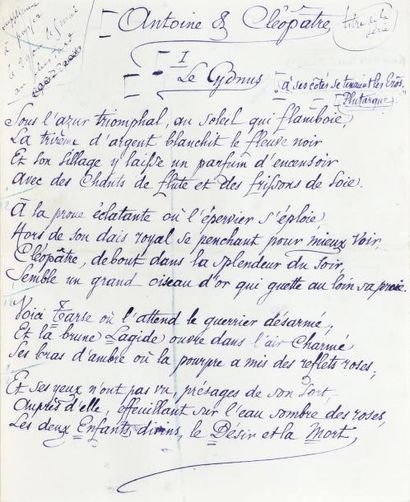 Antoine & Cléopâtre
titre de la série
I
Le Cydnus
"à ses côtés se tenaient les Erôs.
Plutarque"
Sous l'azur triomphal, au soleil qui flamboie,
La trirème d'argent blanchit le fleuve noir
Et son sillage y laisse un parfum d'encensoir
Avec des Chants de flûte et des frissons de soie.
À la proue éclatante où l'épervier s'éploie,
Hors de son dais royal se penchant pour mieux voir,
Cléopâtre, debout dans la splendeur du soir,
Semble un grand oiseau d'or qui guette au loin sa proie.
Voici Tarse où l'attend le guerrier désarmé,
Et la brune Lagide ouvre dans l'air Charmé
Ses bras d'ambre où la pourpre a mis des reflets roses;
Et ses yeux n'ont pas vu, présages de son Sort,
Auprès d'elle, effeuillant sur l'eau sombre des roses,
Les deux Enfants divins, le Désir et la Mort.